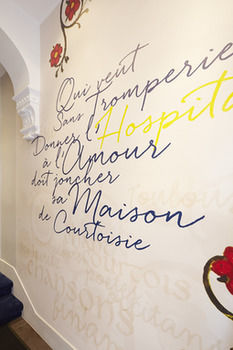 Qui veut
Sans tromperie
Donner l'Hospita
à l'Amour
doit joncher
sa Maison
de Courtoisie